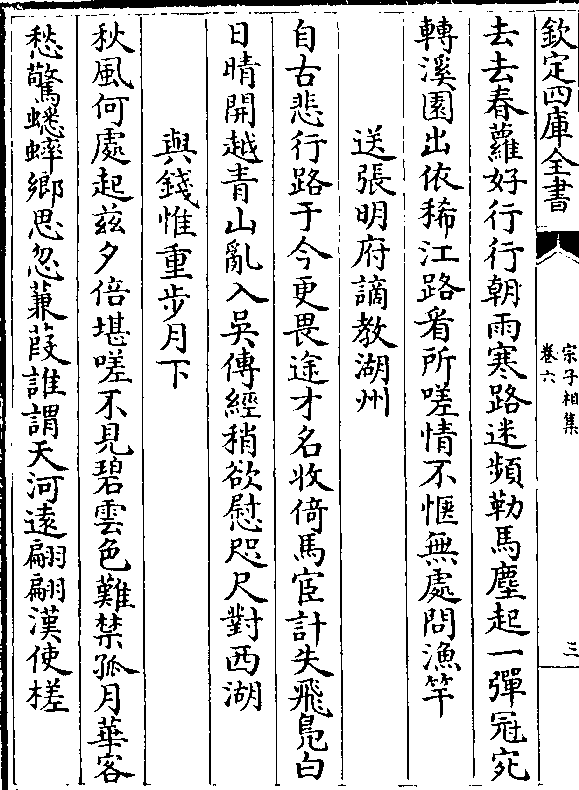 欽定四庫全書
宗子相集
卷六
三
去去春蘿好行行朝雨寒路迷頻勒馬塵起一彈冠宛
轉溪園出依稀江路看所嗟情不愜無處問漁竿
送張明府謫教湖州
自古悲行路于今更畏途才名收倚馬宦計失飛鳧白
日晴開越青山亂入吳傳經稍欲慰咫尺對西湖
與錢惟重步月下
秋風何處起兹夕倍堪嗟不見碧雲色難禁孤月華客
愁驚蟋蟀鄉思忽蒹葭誰謂天河遠翩翩漢使槎